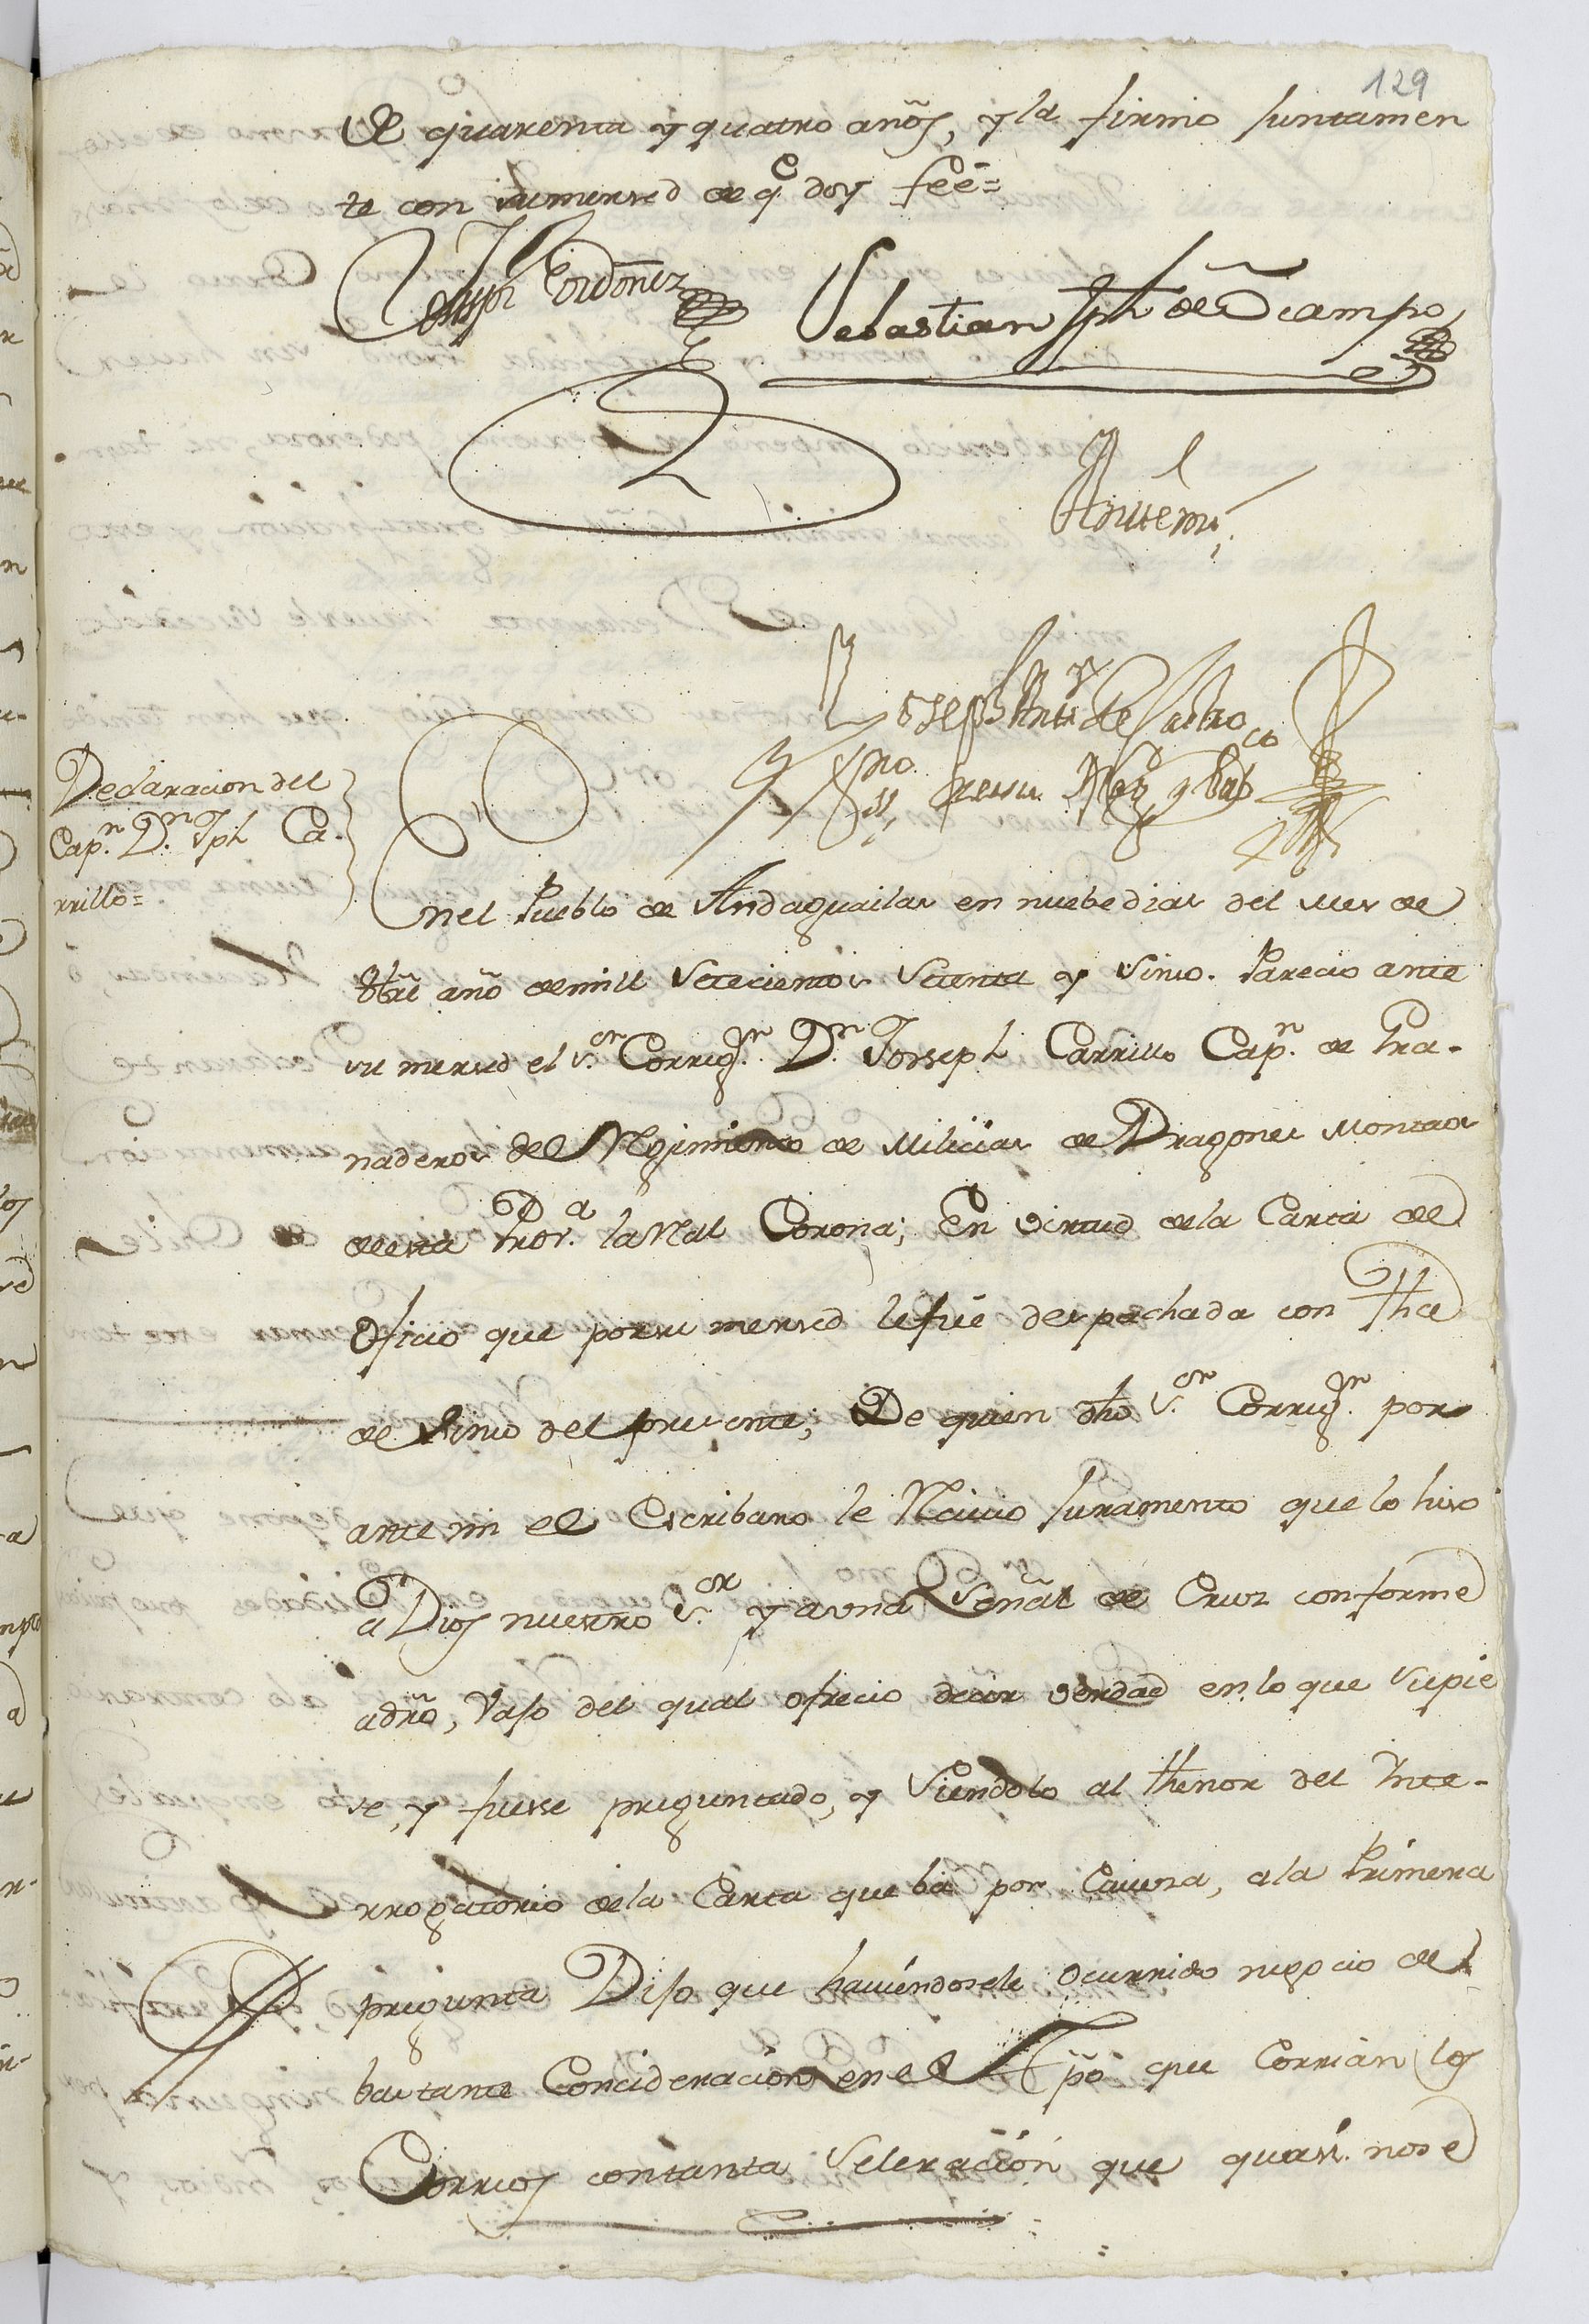 129
de quarenta y quatro añoˢ, y la firmo Juntamen
te con su mersed de q.ᵉ doy feé=
Jph Ordoñez
Sebastian Jph de Ocampo
Antemi
Joseph Anttº de Castro
ssno. ppcº
Declaracion del
Cap.ⁿ D.ⁿ Jph Ca-
rrillo=
En el Pueblo de Andaguailas en nuebe dias del mes de
8bre año de mill Setecientos Setenta y Sinco. Parecio ante
su mersed el s.ᵒʳ Correg.ᵒʳ D.ⁿ Joseph Carrillo Cap.ⁿ de Gra-
naderos del Rejimiento de Milicias de Dragones Montaos
de esta Prov.ᵃ la Ral Corona; En virtud de la Carta de
Oficio que por su mersed le fue despachada con fha
de sinco del presente; De quien dho s.ᵒʳ Correg.ᵒʳ por
ante mi el Escribano le Recivio Juramento que lo hiso
a Dios nuestro s.ᵒʳ y a una Señal de Cruz conforme
a dro, vajo del qual ofrecio decir verdad en lo que supie
se, y fuese preguntado, y Siendolo al thenor del Inte-
rrogatorio de la Carta que ba por Cavesa, a la Primera
pregunta Dijo que haviendosele ocurrido negocio de
bastante Concideracion en el Tpo que Corrian los
Correos con tanta Seleración que quasi no se